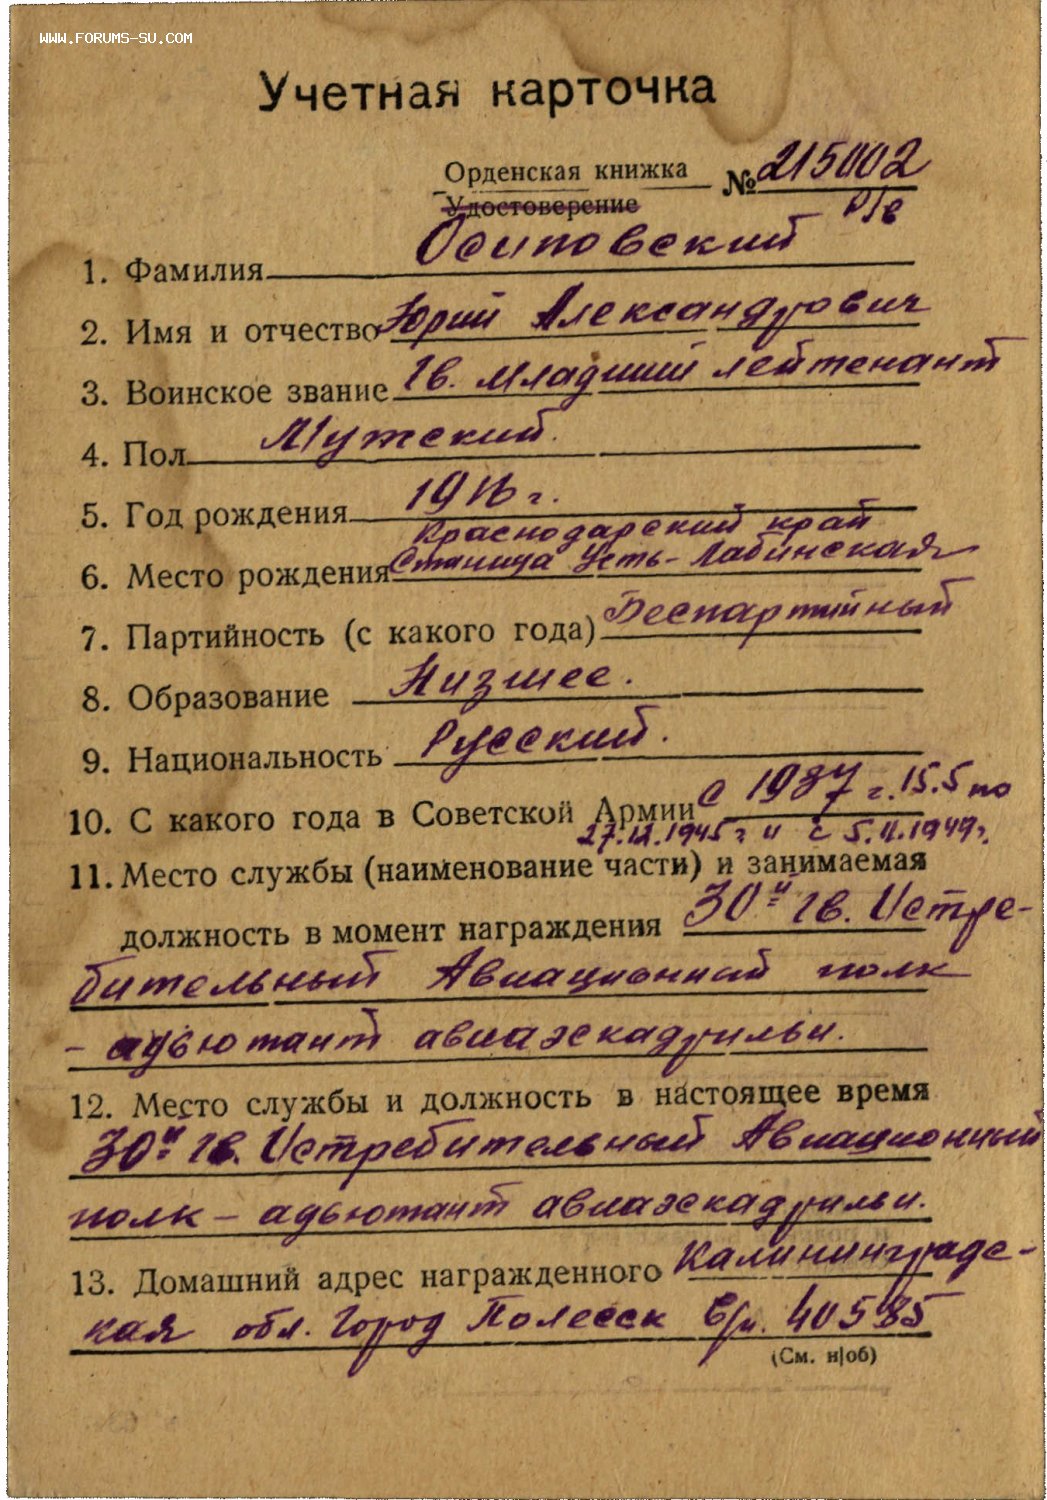 WWW.FORUMS-SU.COM
Учетная карточка
Орденская книжка № 215002
Удостоверение
1. Фамилия Осиповский
2. Имя и отчество Юрий Александрович
3. Воинское звание Гв. Младший лейтенант
4. Пол Мужский.
5. Год рождения 1916 г.
Краснодарский край
6. Место рождения Станица Усть-Лабинская
7. Партийность (с какого года) Беспартийный
8. Образование Низшее.
9. Национальность Русский.
10. С какого года в Советской Армии С 1937 г. 15.5 по
27.12.1945 г и с 5.11.1949 г.
11. Место службы (наименование части) и занимаемая
должность в момент награждения 30й Гв. Истре-
бительный Авиационный полк
- адьютант авиаэскадрильи.
12. Место службы и должность в настоящее время
30й Гв. Истребительный Авиационный
полк - адьютант авиаэскадрильи.
13. Домашний адрес награжденного Калининградс-
кая обл. Город Полесск в/ч. 40585
(См. н|об)